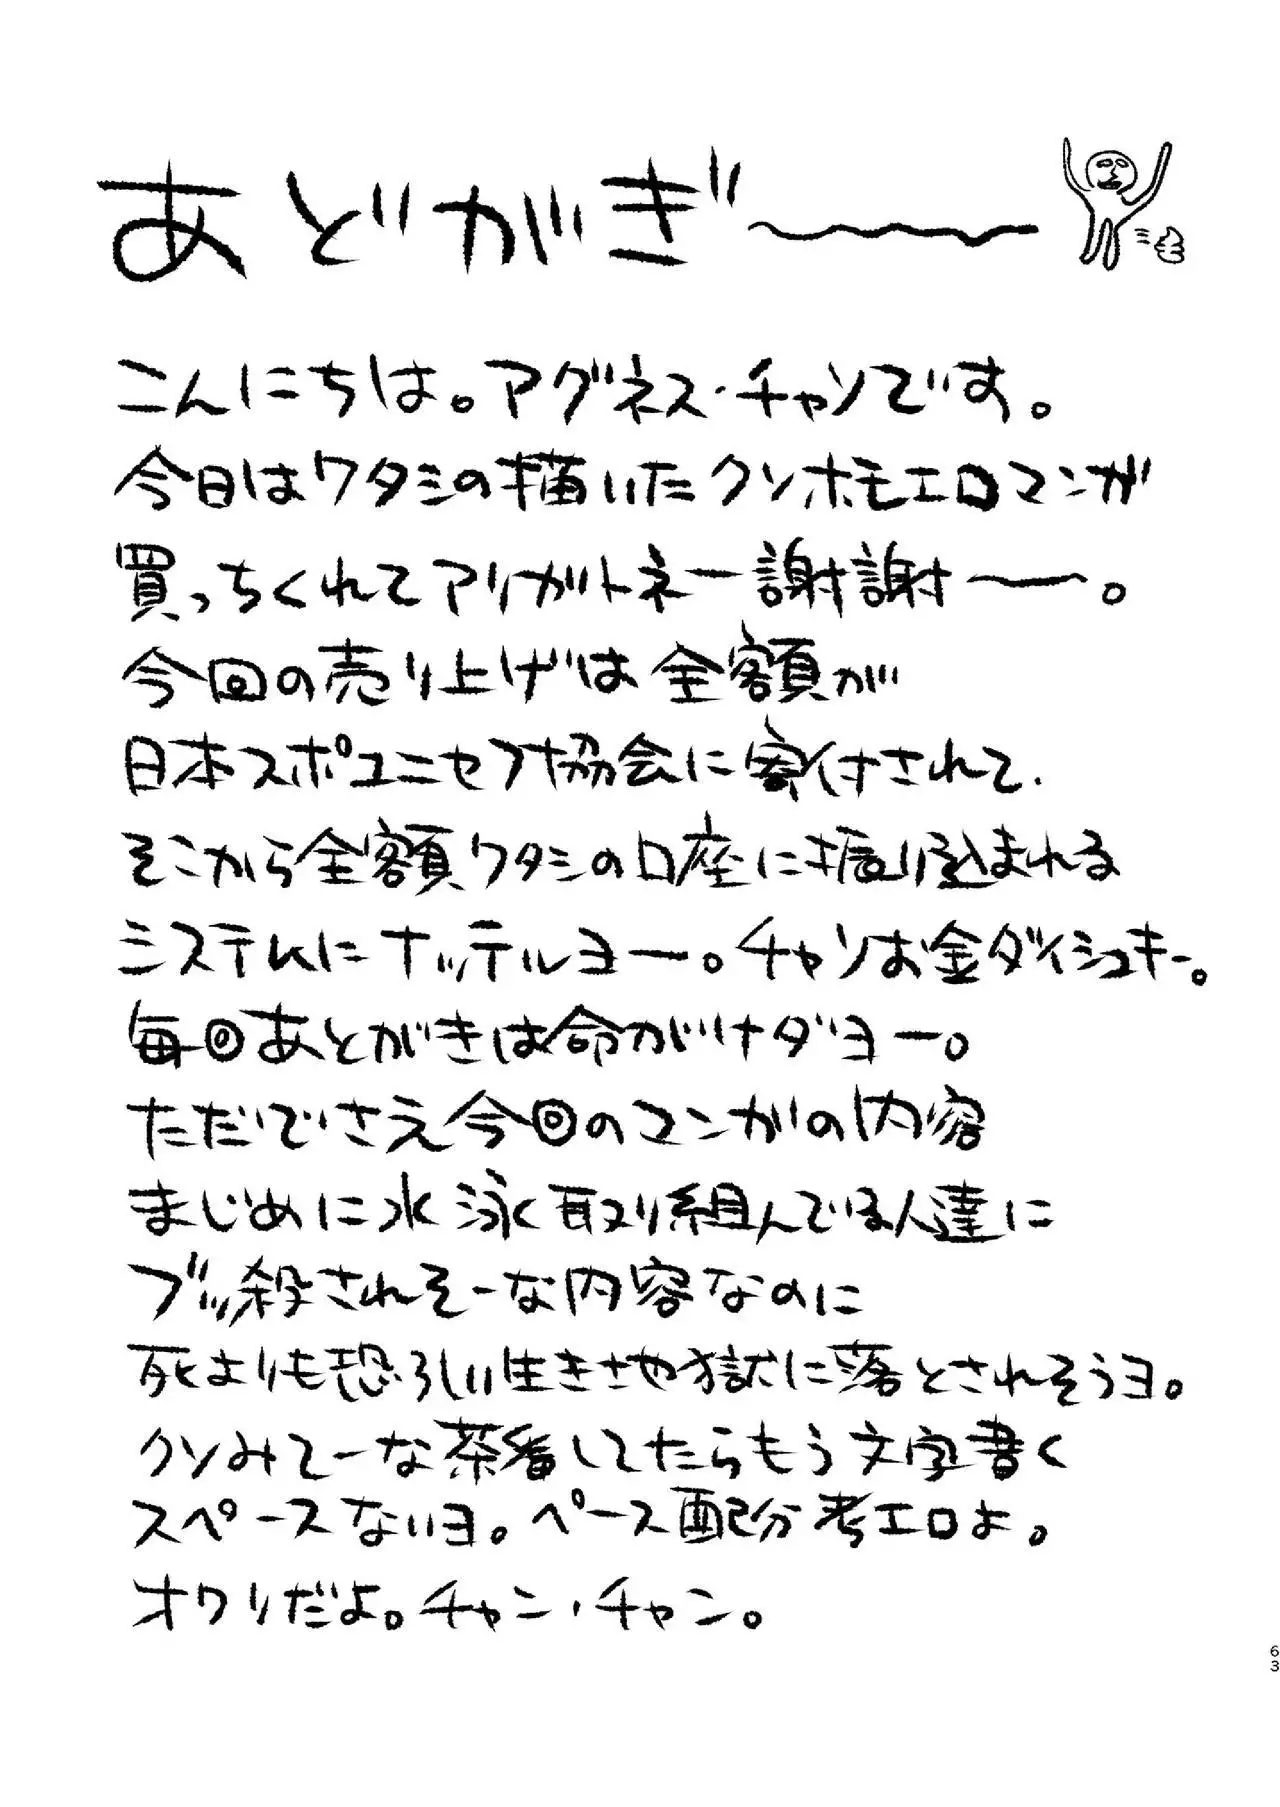 あどがぎ〜〜
こんにちは。アグネス・チャンです。
今日はワタシの描いたクソホモエロマンガ
買っちくれてアリガトネー謝謝ー。
今回の売り上げは全額が
日本スポユニセフ協会に寄付されて、
そこから全額ワタシの口座に振り込まれる
システムにナッテルヨー。チャンお金ダイシュキー。
毎回あとがきは命がけダヨー。
ただでさえ今回のマンガの内容
まじめに水泳取り組んでる人達に
ブッ殺されそーな内容なのに
死よりも恐ろしい生きさせ獄に落とされそうヨ。
クソみてーな茶番してたらもう文字書く
スペースないヨ。ペース配分考エロよ。
オワリだよ。チャン・チャン。
63